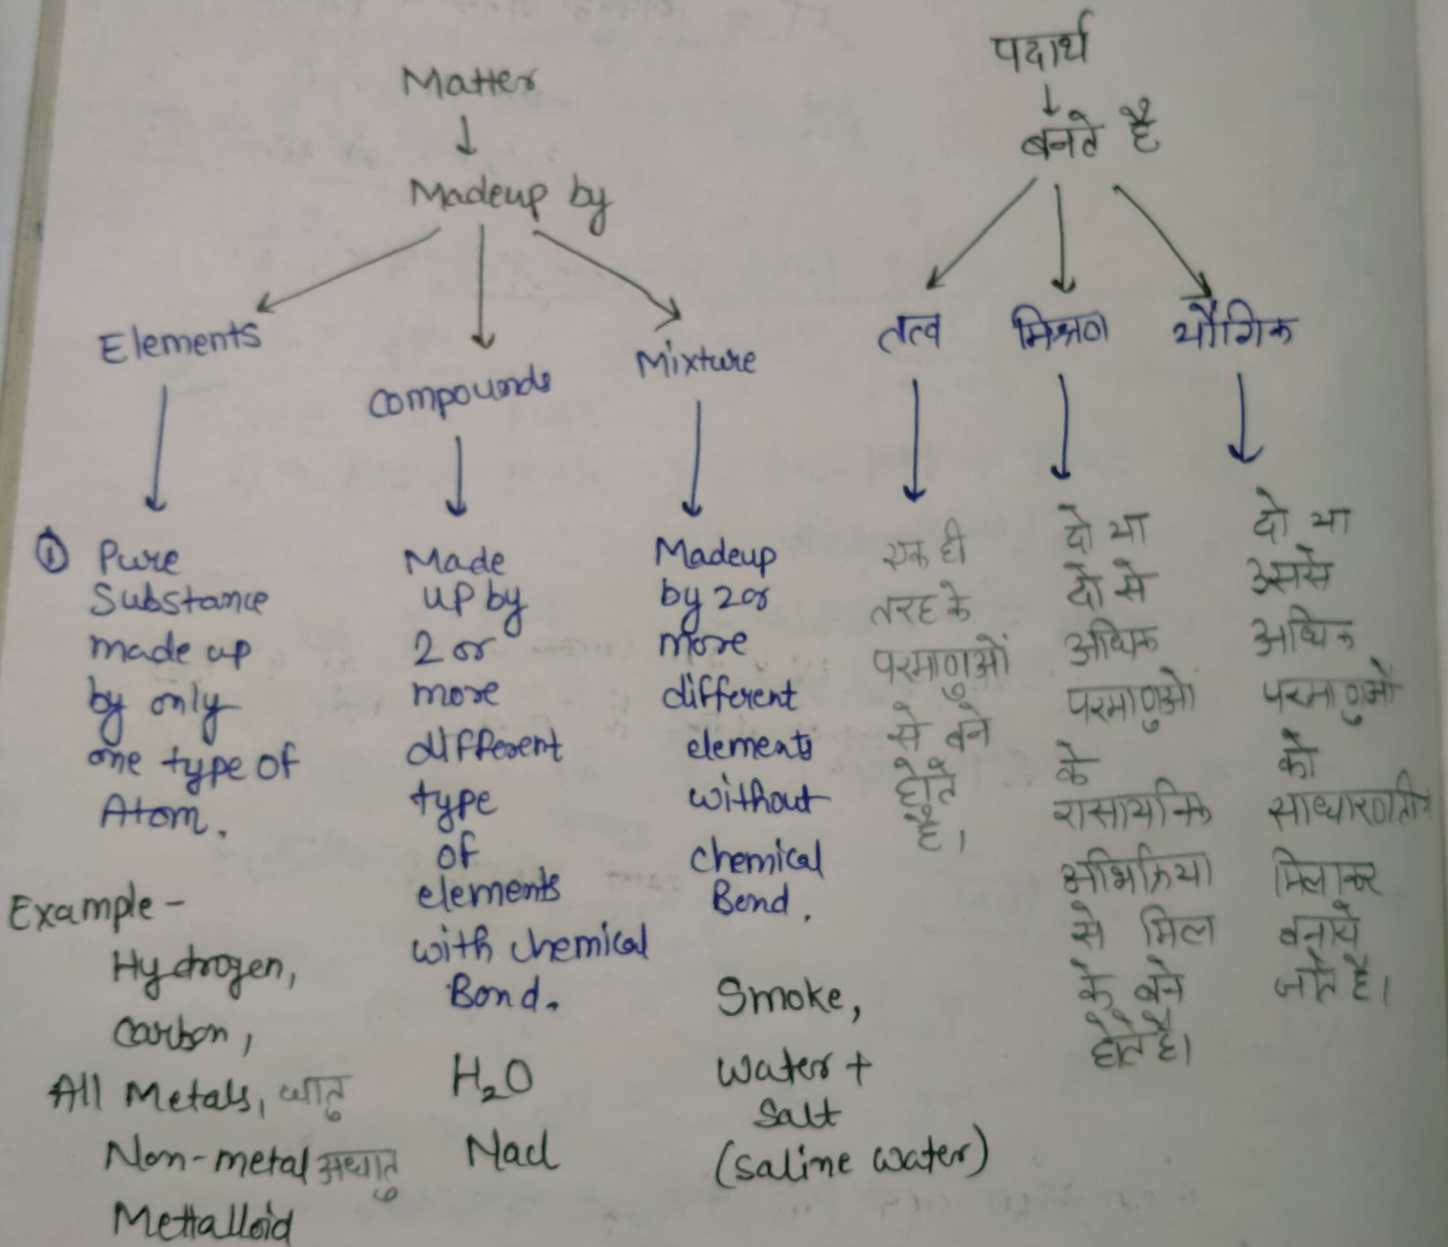 Matter
Madeup by
Elements
Compounds
Mixture
① Pure
Substance
made up
by only
one type of
Atom.
Example -
Hydrogen,
Carbon,
All Metals, धातु
Non-metal अधातु
Mettalloid
Made
up by
2 or
more
different
type
of
elements
with chemical
Bond.
H₂O
Nacl
Madeup
by 2 or
more
different
elements
without
chemical
Bond.
Smoke,
Water +
Salt
(saline water)
पदार्थ
बनते है
तत्व
मिश्रण
यौगिक
एक ही
तरह के
परमाणुओं
से बने
होते
है।
दो या
दो से
अधिक
परमाणुओ
के
रासायनिक
अभिक्रिया
से मिल
के बने
होते है।
दो या
उससे
अधिक
परमाणुओ
को
मिलाकर
बनाये
जाते है।